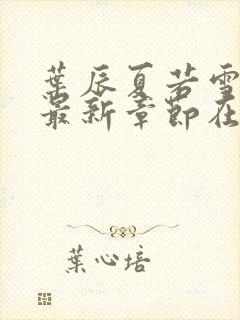 葉辰夏若雪
最新章節在
葉心培